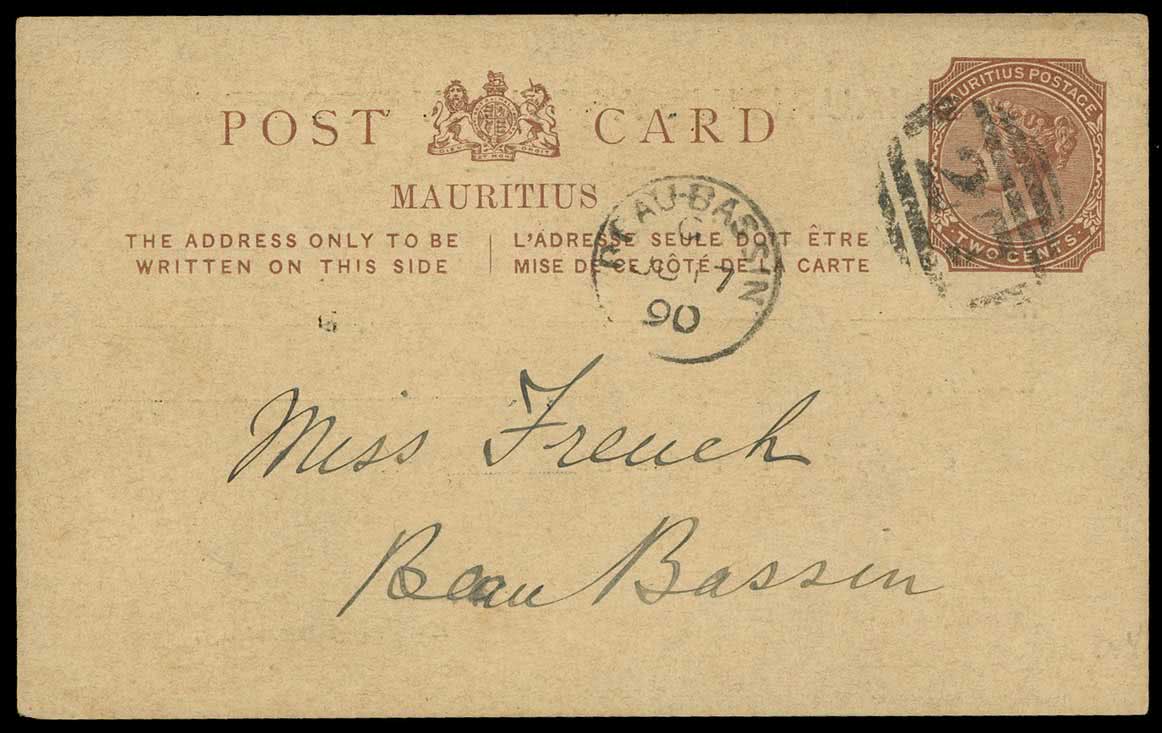 POST CARD
MAURITIUS
THE ADDRESS ONLY TO BE
WRITTEN ON THIS SIDE
L'ADRESSE SEULE DOIT ÊTRE
MISE DE CE CÔTÉ DE LA CARTE
MAURITIUS POSTAGE
TWO CENTS
BEAU-BASSIN
C
17
90
Miss French
Beau Bassin